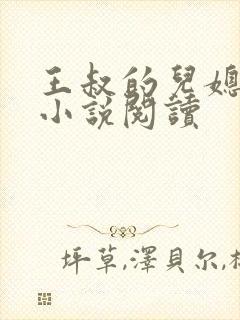 王叔的兒媳
小說閱讀
坪草,澤貝尔,